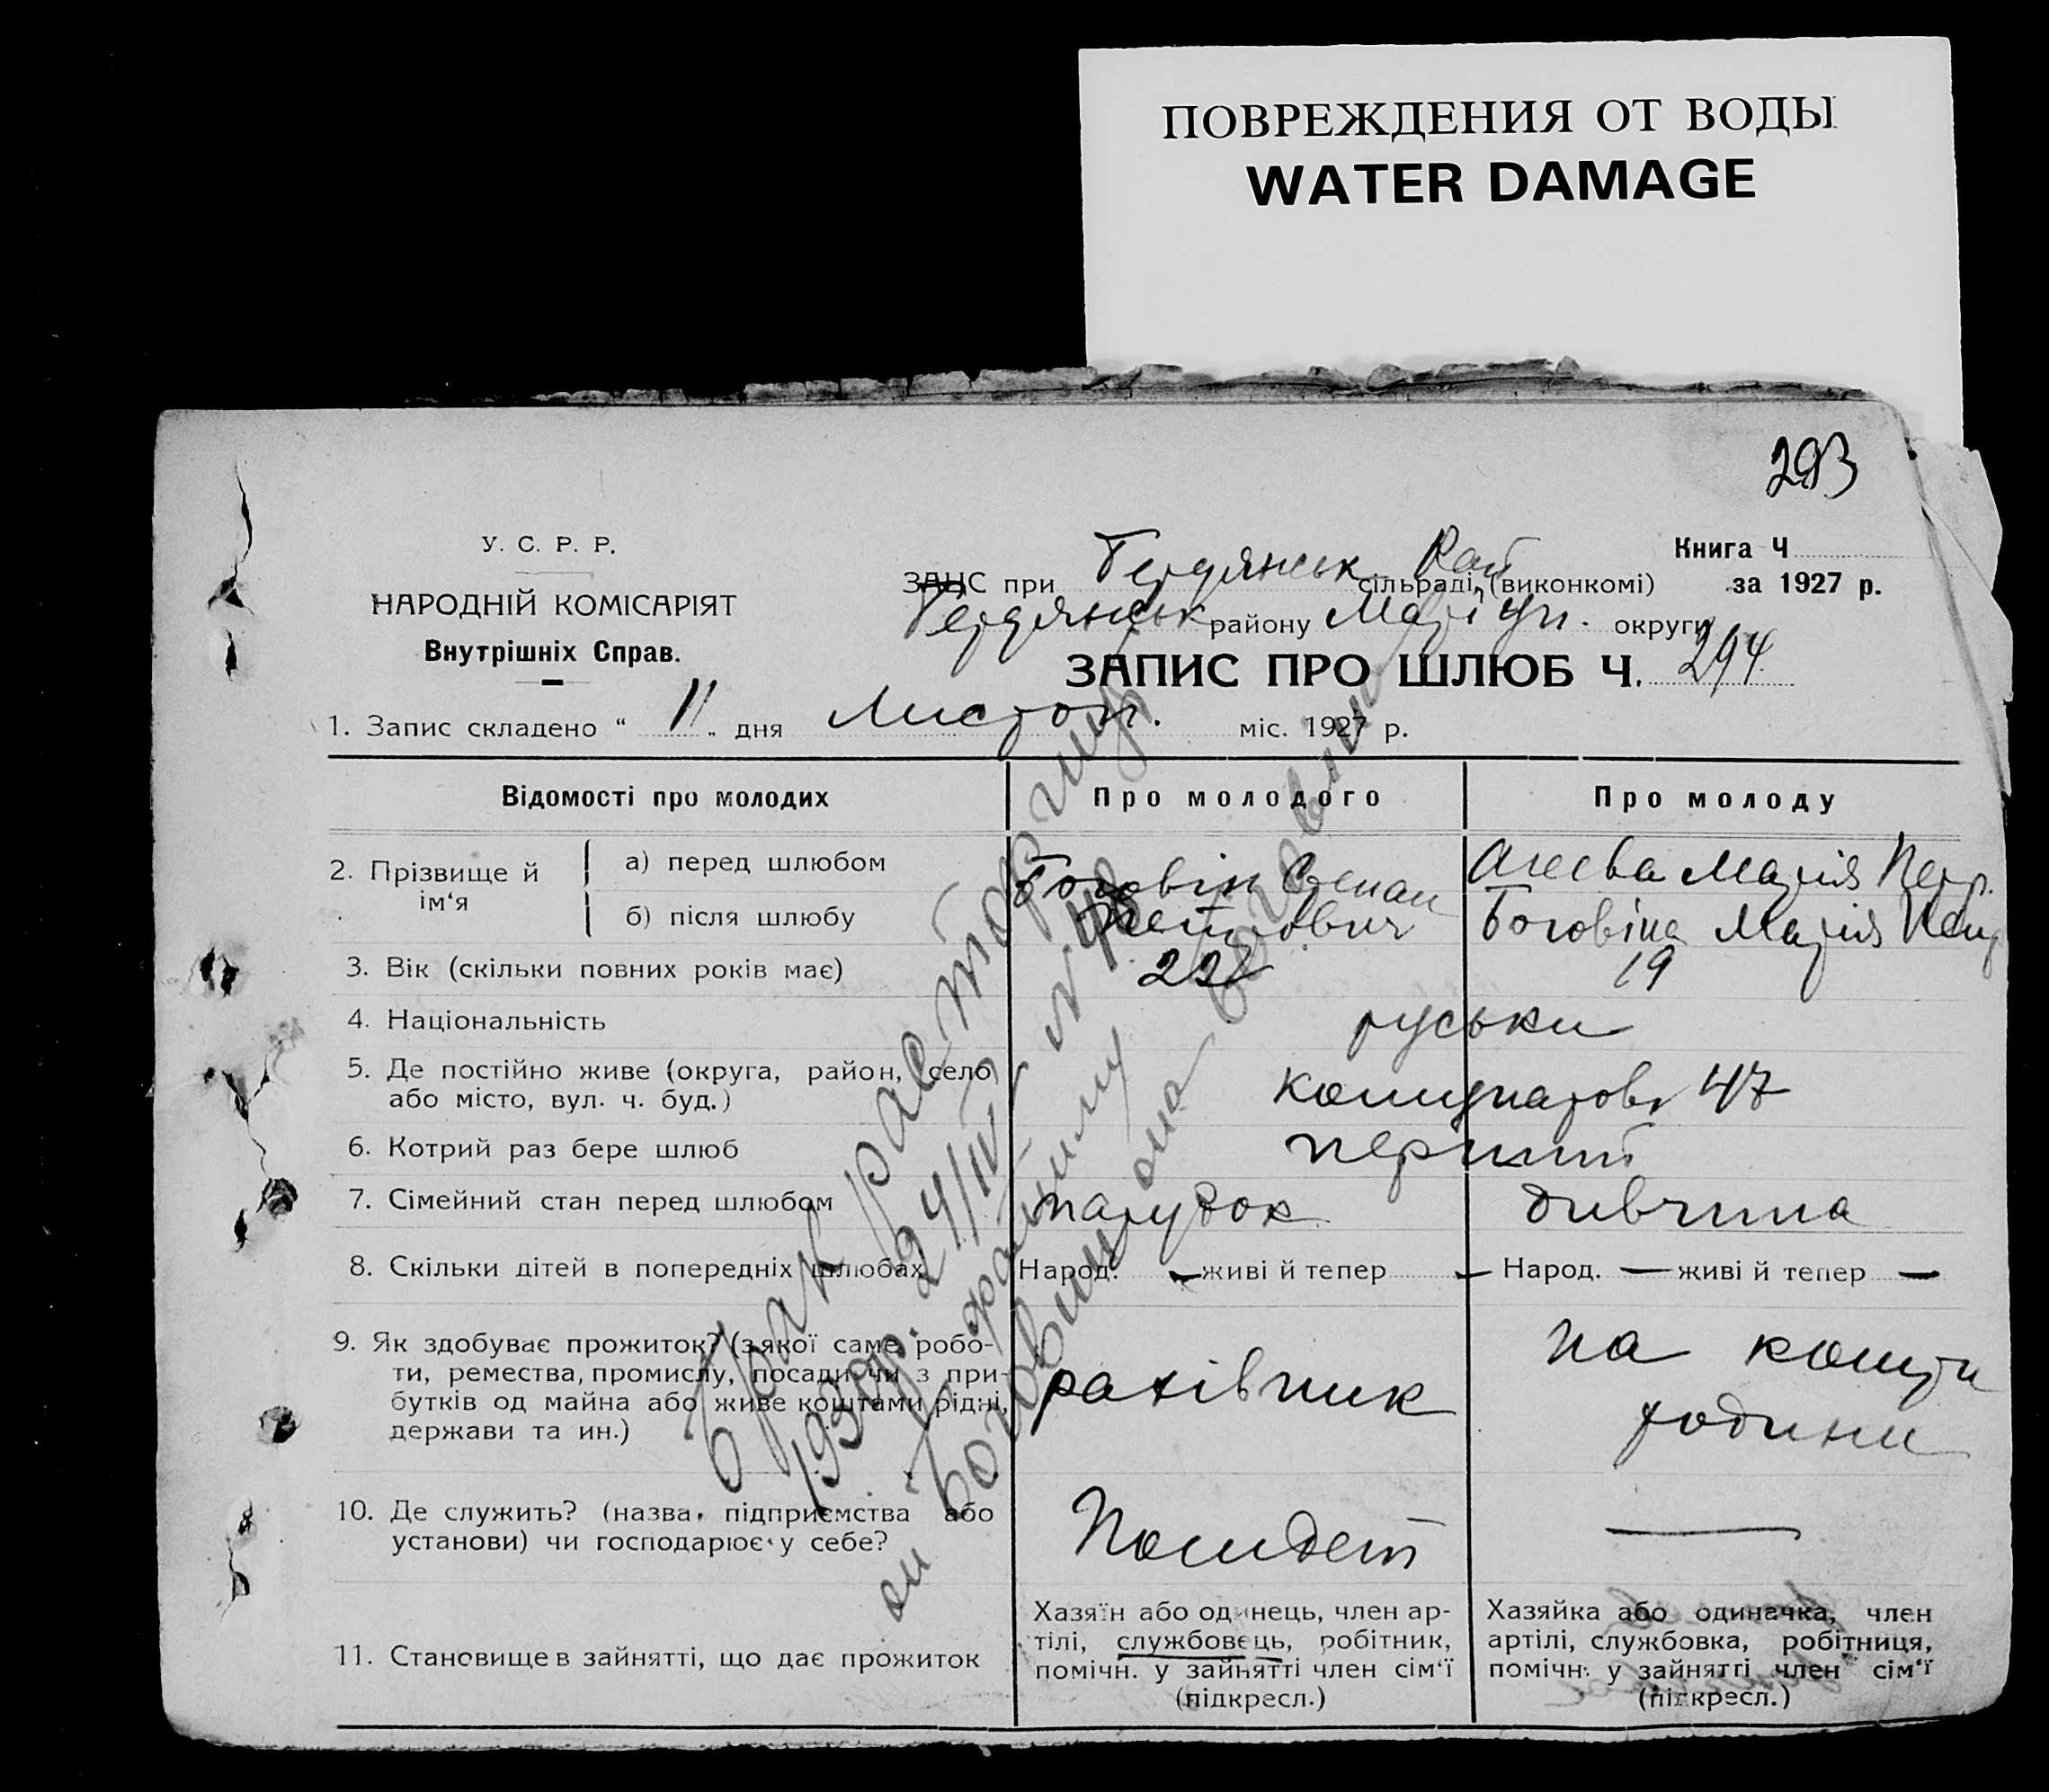 ПОВРЕЖДЕНИЯ ОТ ВОДЫ
WATER DAMAGE
293
У. С. Р. Р.
НАРОДНІЙ КОМІСАРІЯТ
Внутрішніх Справ.
Книга Ч
ЗАГС при Бердянськ Рай сільраді, (виконкомі) за 1927 р.
Бердянськ району Маріуп. округи
ЗАПИС ПРО ШЛЮБ Ч. 294
1. Запис складено “ 11 „ дня Листоп. міс. 1927 р.
Відомості про молодих
Про молодого
Про молоду
2. Прізвище й ім‘я
а) перед шлюбом
Боговін Степан
Агеева Марія Петр.
б) після шлюбу
Петрович
Боговіна Марія Петр
3. Вік (скільки повних років має)
22
19
4. Національність
руськи
5. Де постійно живе (округа, район, село
або місто, вул. ч. буд.)
47
6. Котрий раз бере шлюб
перший
7. Сімейний стан перед шлюбом
парубок
дивчина
8. Скільки дітей в попередніх шлюбах
Народ. — живі й тепер —
Народ. — живі й тепер —
9. Як здобуває прожиток? (з якої саме робо-
ти, ремества, промислу, посади чи з при-
бутків од майна або живе коштами рідні,
держави та ин.)
рахівник
на кошти
родини
10. Де служить? (назва підприємства або
установи) чи господарює у себе?
—
11. Становище в зайнятті, що дає прожиток
Хазяїн або одинець, член ар-
тілі, службовець, робітник,
помічн. у зайнятті член сім‘ї
(підкресл.)
Хазяйка або одиначка, член
артілі, службовка, робітниця,
помічн. у зайнятті член сім‘ї
(підкресл.)
Брак расторгнут
1930р. 24/IV N 48
фамилию
он Боговин она Боговин